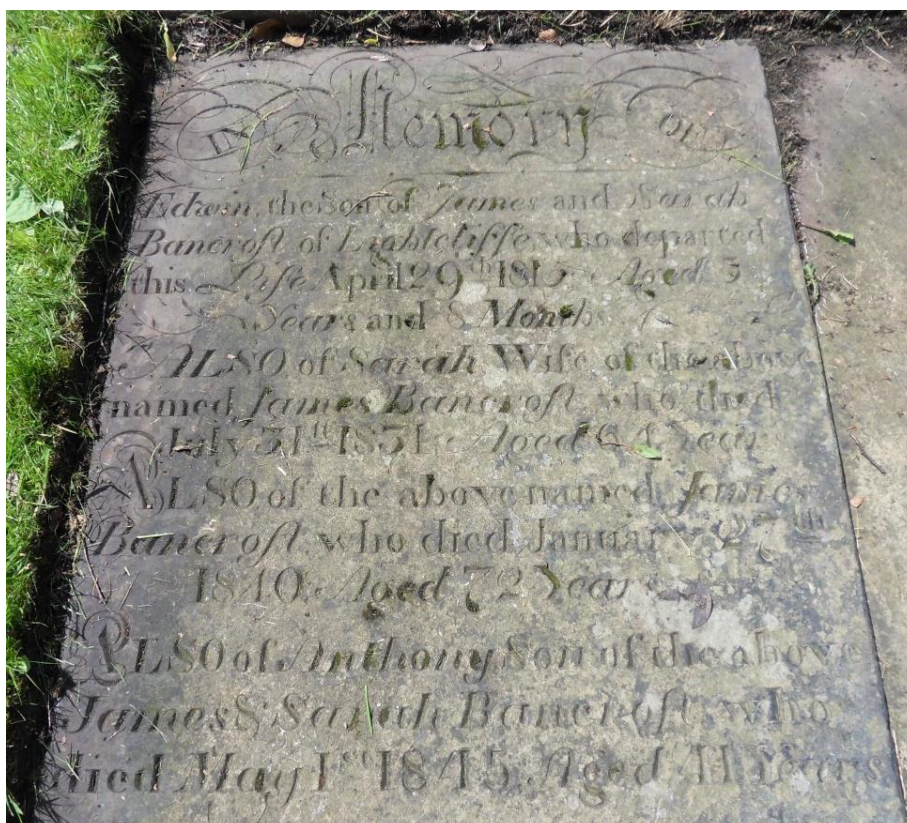 In Memory of
Edwin, the Son of James and Sarah
Bancroft of Lightcliffe, who departed
this Life April 29th 1815 Aged 3
Years and 8 Months
ALSO of Sarah Wife of the above
named James Bancroft, who died
July 31st 1831, Aged 64 Years
ALSO, of the above named James
Bancroft, who died January 27th
1840, Aged 72 Years
ALSO of Anthony Son of the above
James & Sarah Bancroft, who
died May 1st 1845, Aged 41 Years